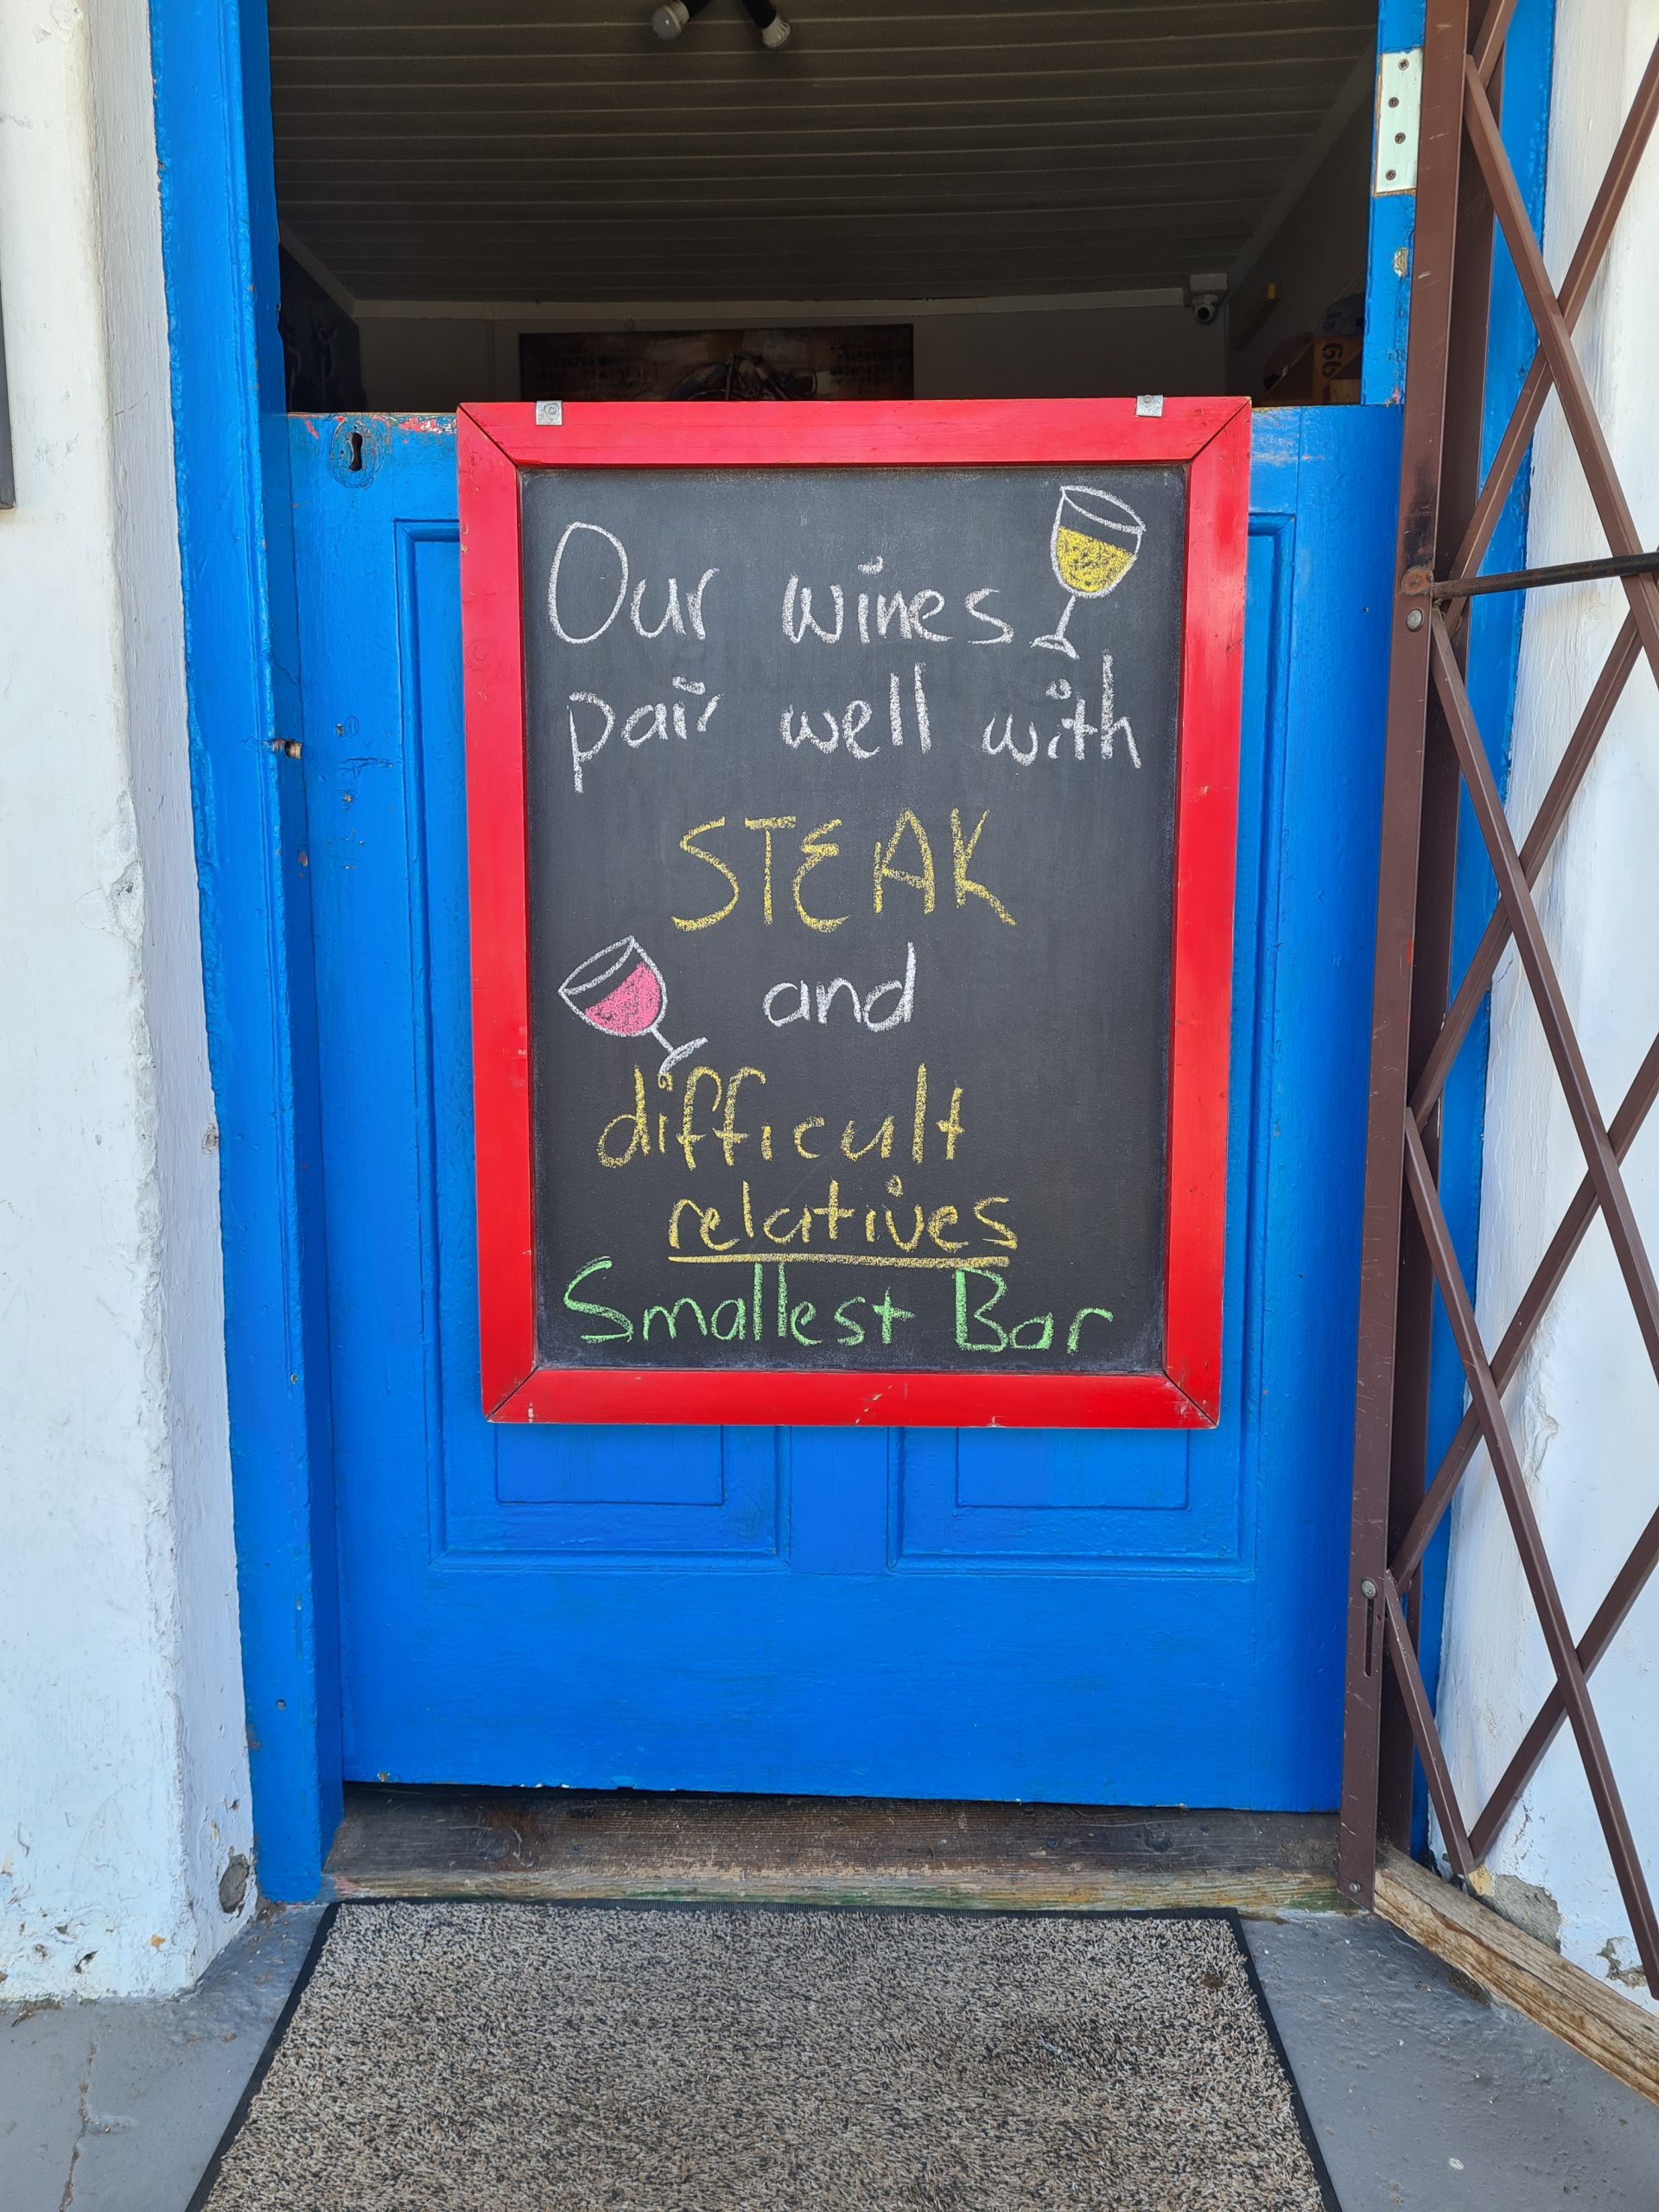 Our wines
pair well with
STEAK
and
difficult
relatives
Smallest Bar